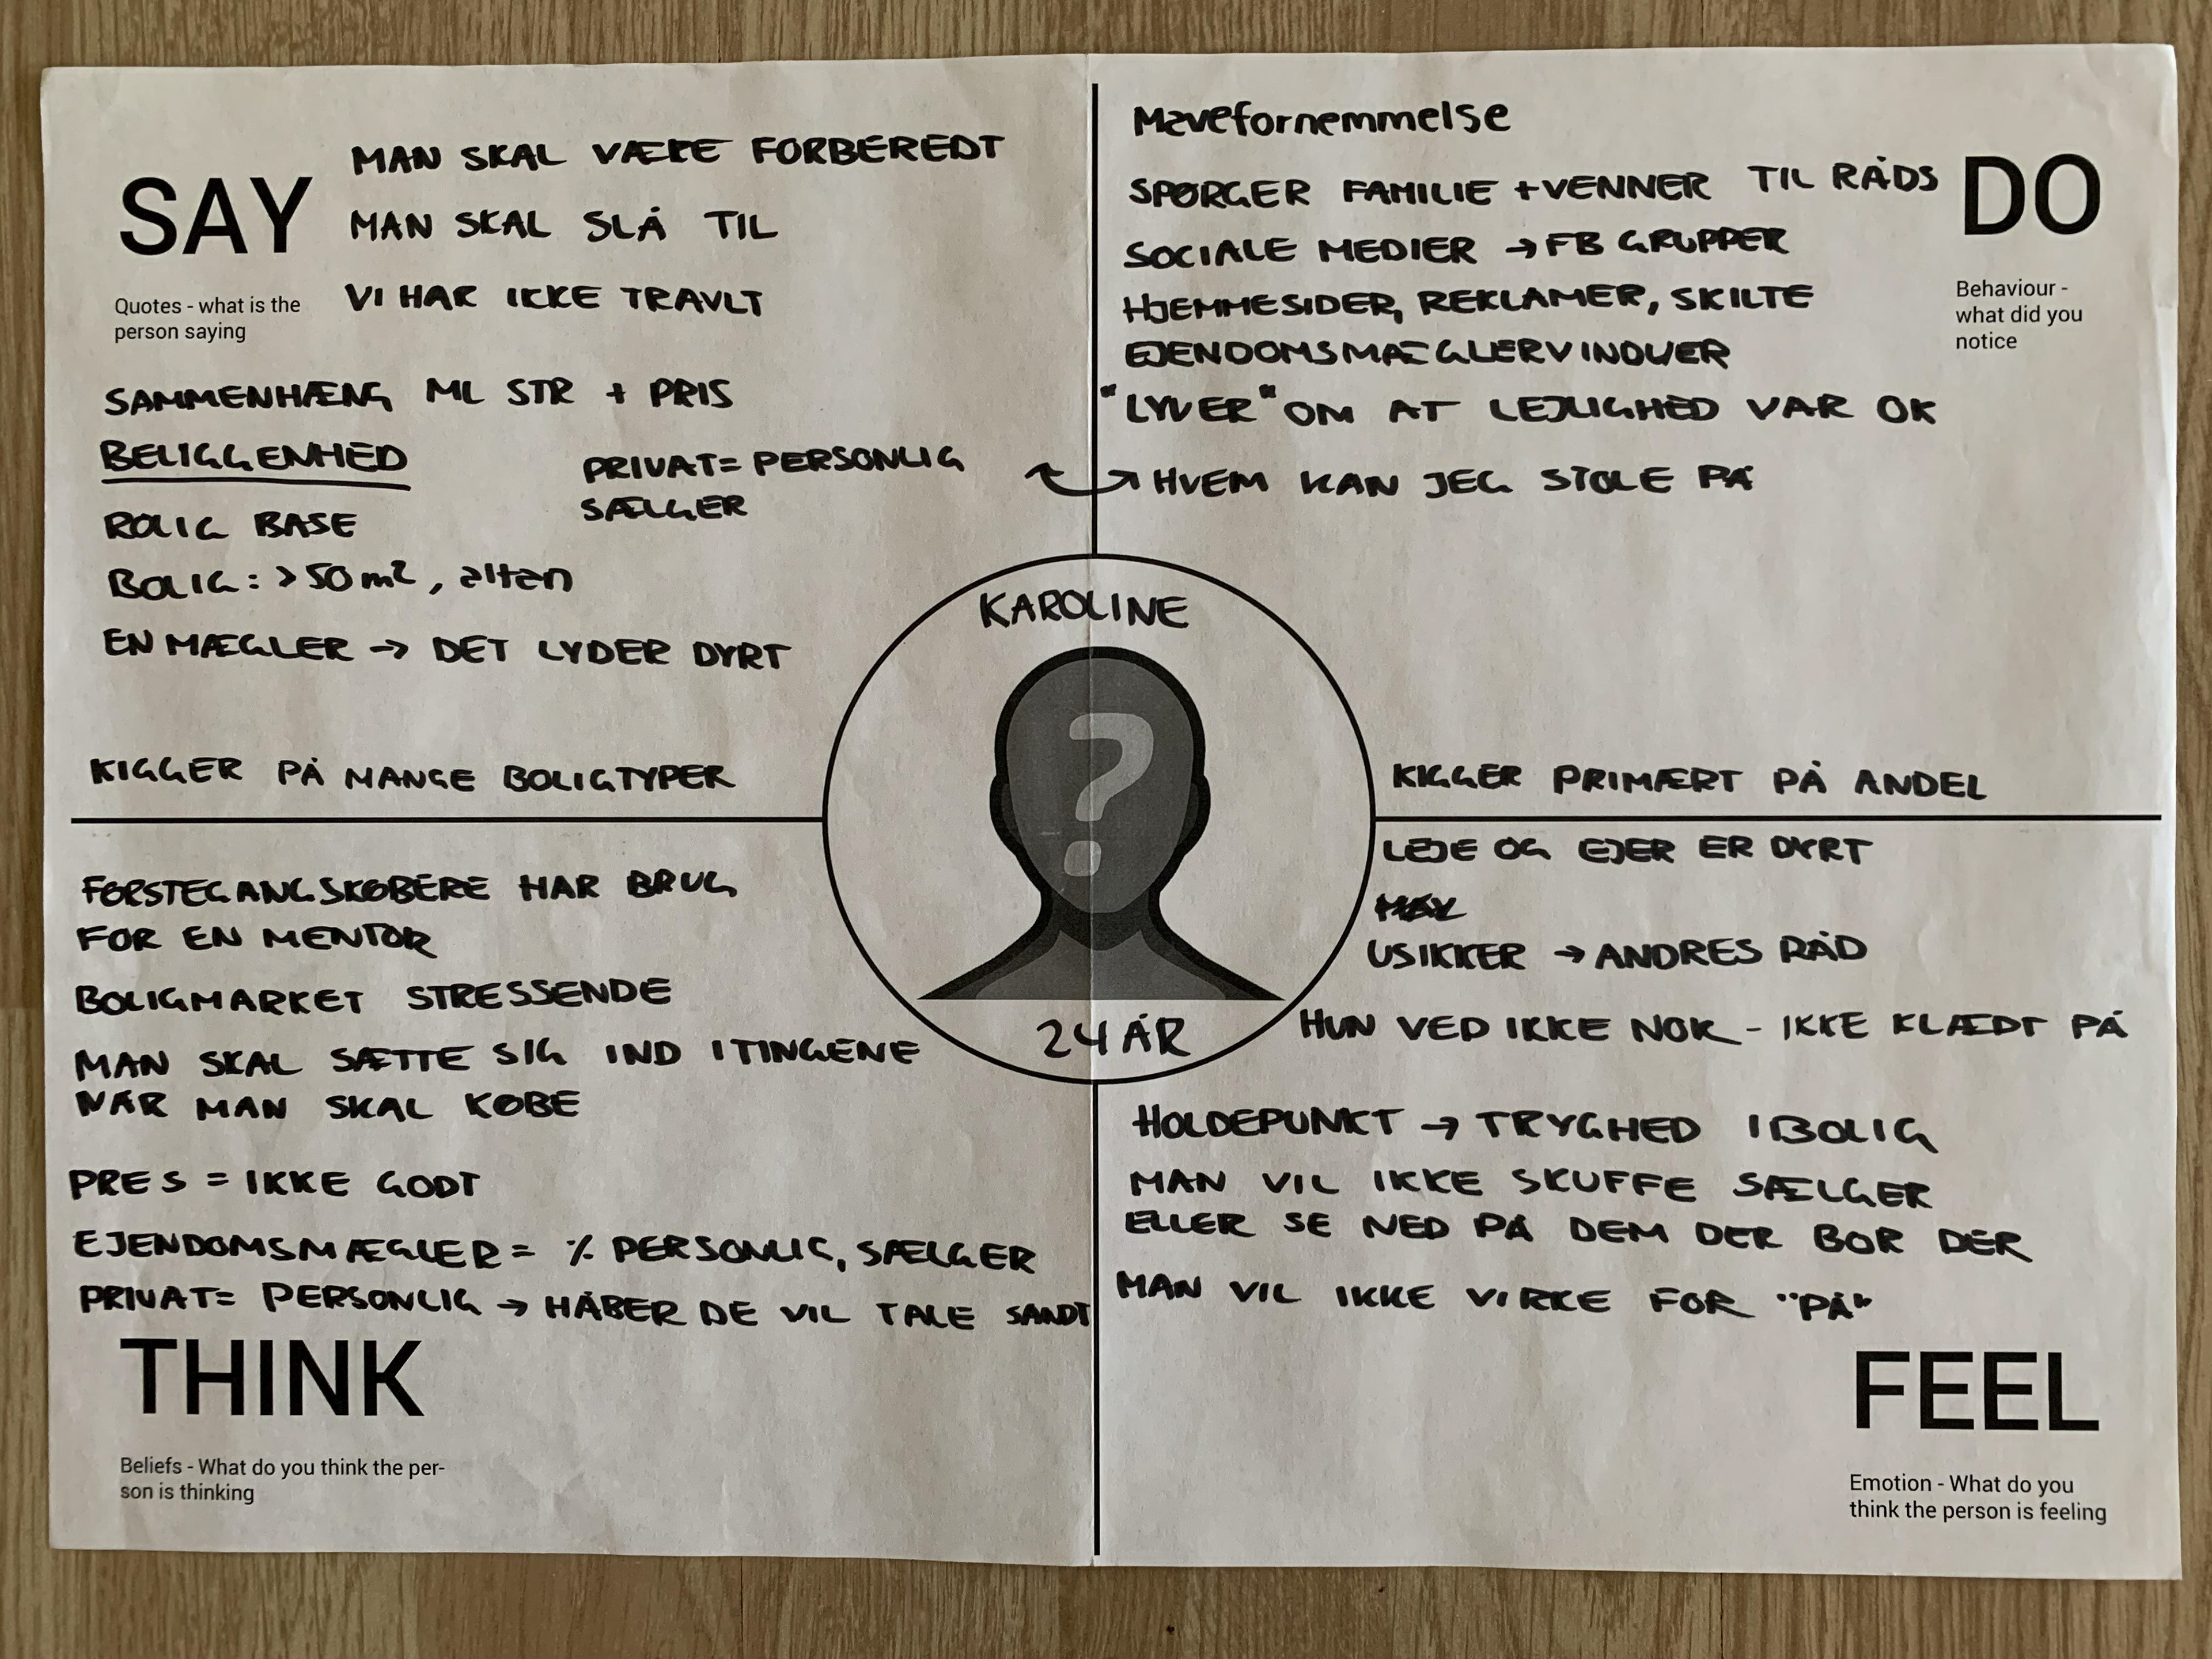 SAY
Quotes - what is the
person saying
MAN SKAL VÆRE FORBEREDT
MAN SKAL SLÅ TIL
VI HAR IKKE TRAVLT
SAMMENHÆNG ML STR + PRIS
BELIGGENHED
PRIVAT= PERSONLIG
SÆLGER
ROLIG BASE
BOLIG: > 50 m2, altan
EN MÆGLER → DET LYDER DYRT
KIGGER PÅ MANGE BOLIGTYPER
DO
Behaviour -
what did you
notice
Mavefornemmelse
SPØRGER FAMILIE + VENNER TIL RÅDS
SOCIALE MEDIER → FB GRUPPER
HJEMMESIDER, REKLAMER, SKILTE
EJENDOMSMÆGLERVINDUER
"LYVER" OM AT LEJLIGHED VAR OK
HVEM KAN JEG STOLE PÅ
KIGGER PRIMÆRT PÅ ANDEL
KAROLINE
?
24 ÅR
FØRSTEGANGSKØBERE HAR BRUG
FOR EN MENTOR
BOLIGMARKET STRESSENDE
MAN SKAL SÆTTE SIG IND I TINGENE
NÅR MAN SKAL KØBE
PRES = IKKE GODT
EJENDOMSMÆGLER = % PERSONLIG, SÆLGER
PRIVAT= PERSONLIG → HÅBER DE VIL TALE SANDT
THINK
Beliefs - What do you think the per-
son is thinking
LEJE OG EJER ER DYRT
USIKKER → ANDRES RÅD
HUN VED IKKE NOK - IKKE KLÆDT PÅ
HOLDEPUNKT → TRYGHED I BOLIG
MAN VIL IKKE SKUFFE SÆLGER
ELLER SE NED PÅ DEM DER BOR DER
MAN VIL IKKE VIRKE FOR "PÅ"
FEEL
Emotion - What do you
think the person is feeling